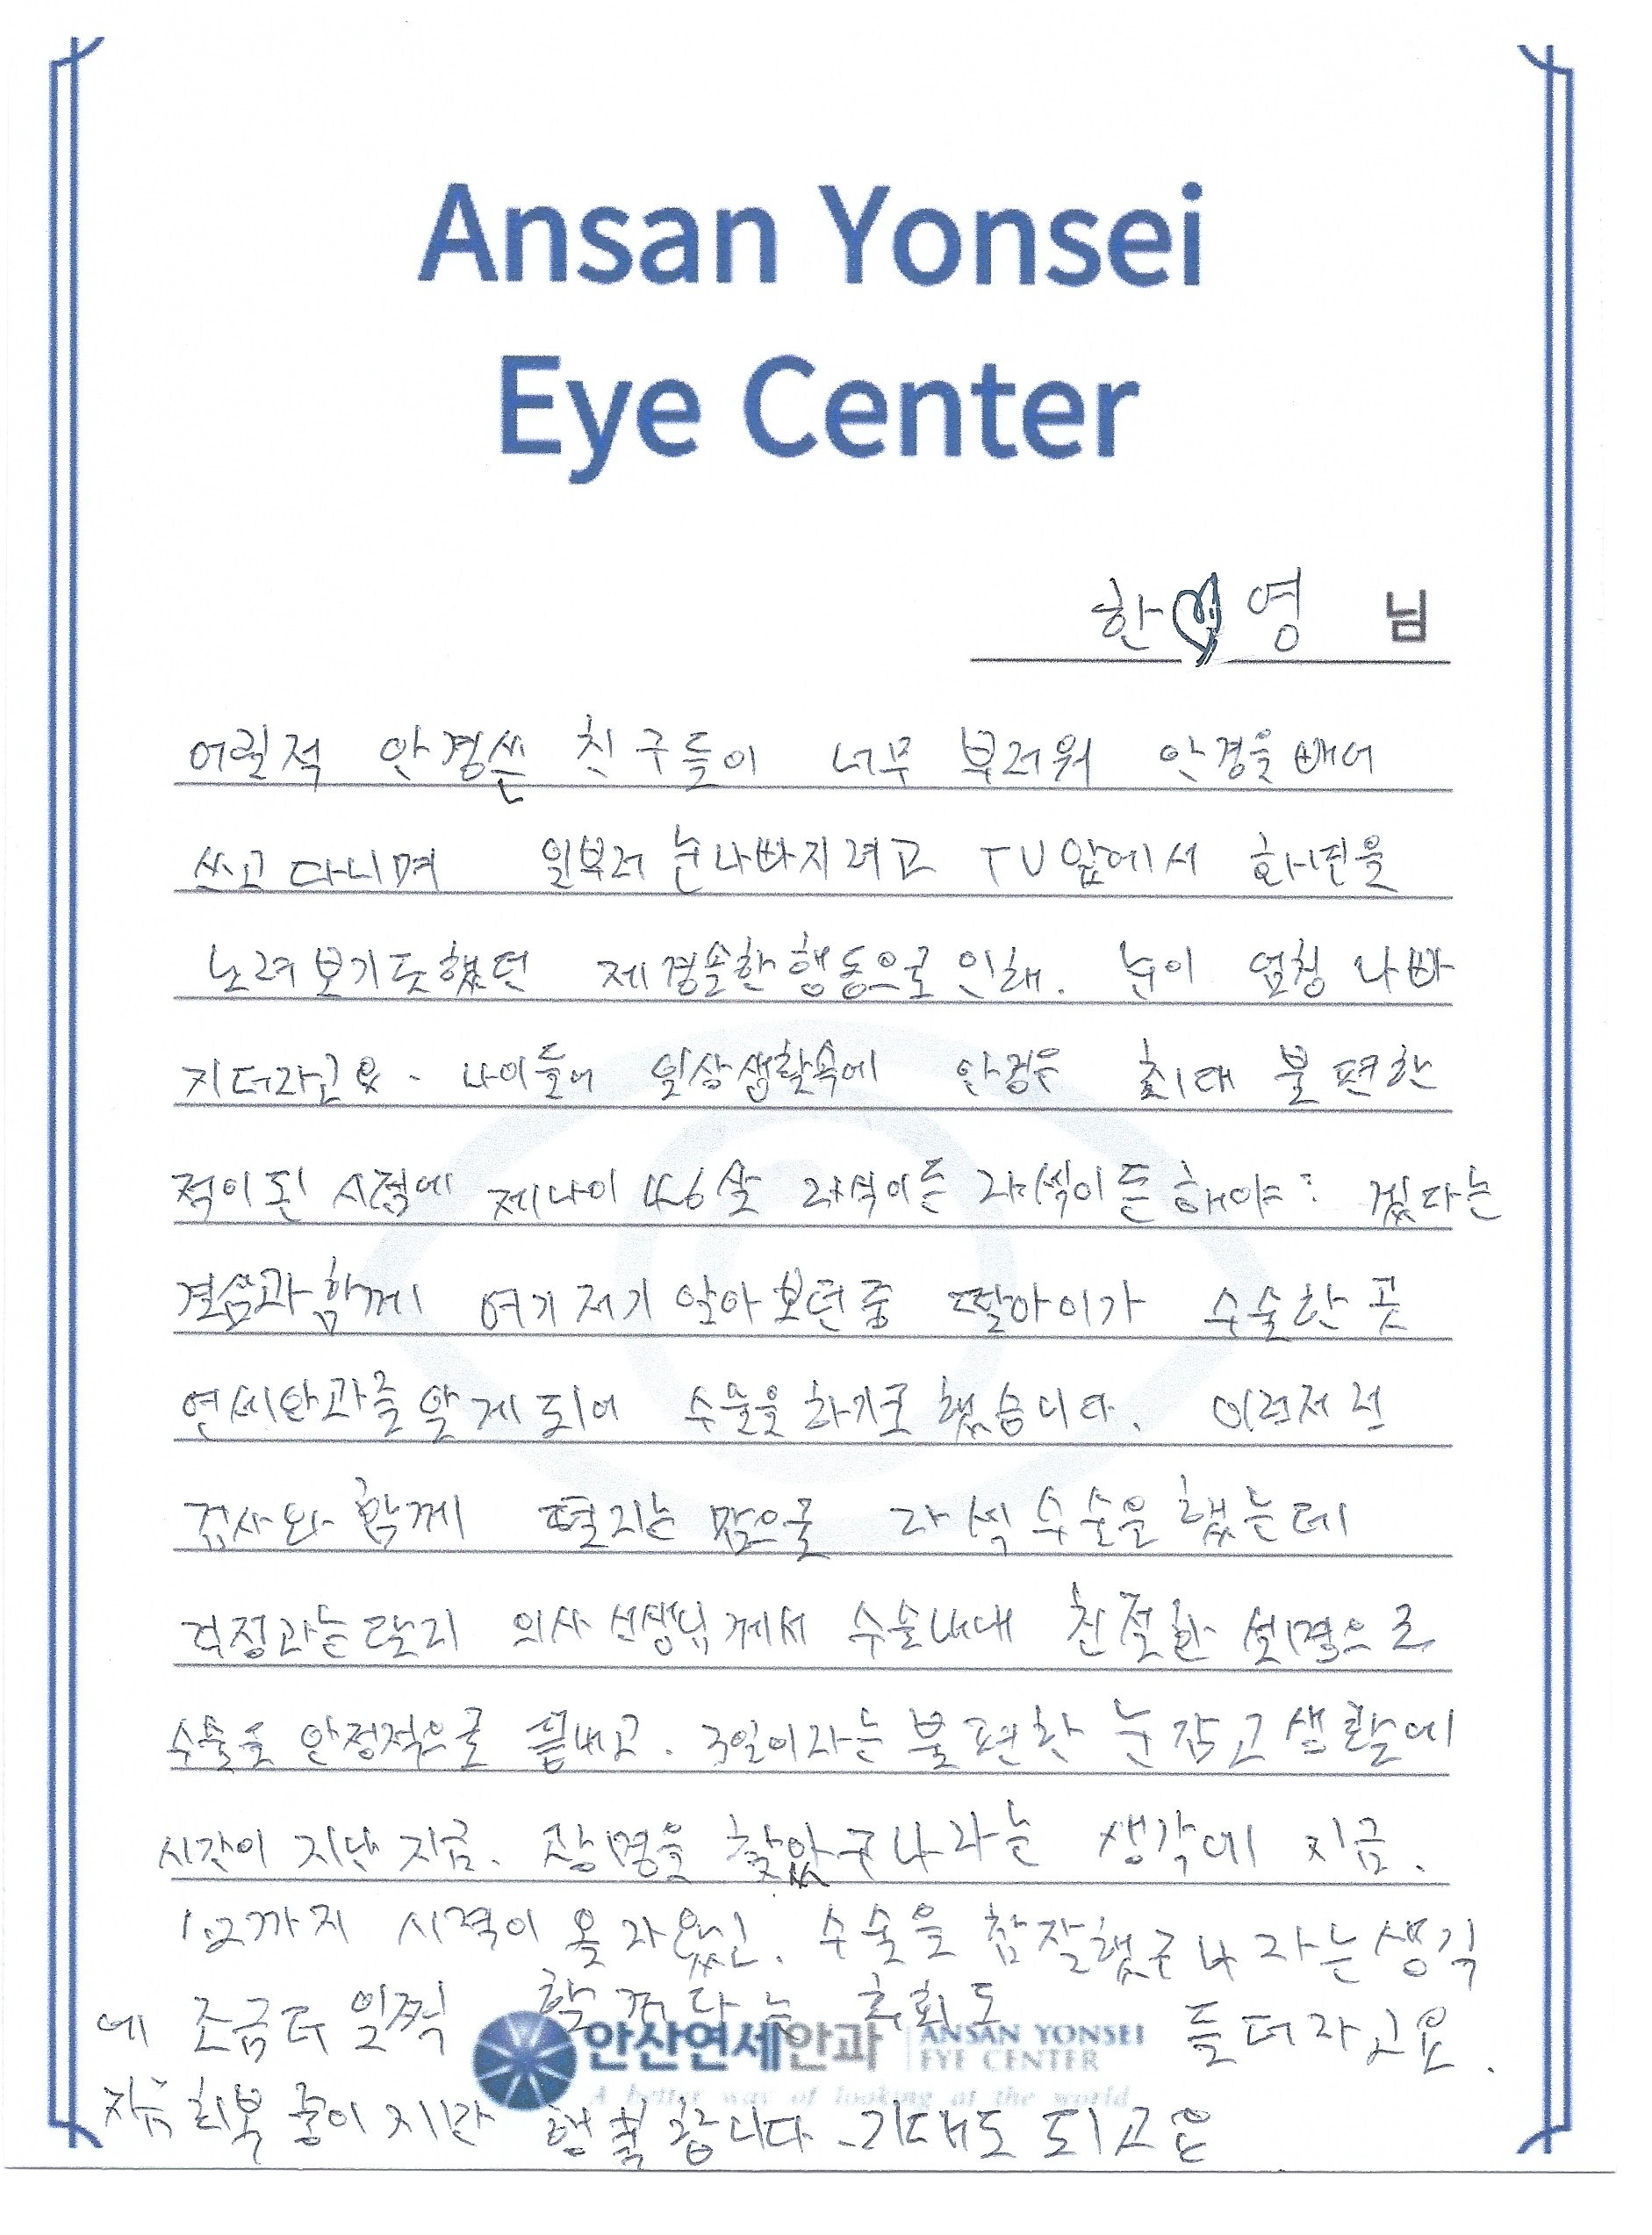 Ansan Yonsei
Eye Center
한 영 님
어릴적 안경쓴 친구들이 너무 부러워 안경을 빼어
쓰고 다니며 일부러 눈나빠지려고 TV앞에서 화면을
노려보기듯했던 제경솔한행동으로 인해. 눈이 엄청 나빠
지더라고요. 나이들어 일상생활속에 안경은 최대 불편한
적이된 시점에 제나이 46살 라식이든 라섹이든해야 겠다는
결심과 함께 여기저기 알아보던중 딸아이가 수술한 곳
연세안과를 알게되어 수술을 하기로 했습니다. 이런저런
검사와 함께 떨리는 맘으로 라섹수술을 했는데
걱정과는달리 의사선생님께서 수술내내 친절한 설명으로
수술을 안정적으로 끝내고. 3일이라는 불편한 눈감고생활에
시간이 지난 지금. 광명을 찾았구나라는 생각에 지금.
1.2까지 시력이 올라왔신. 수술을 참잘했구나 라는생각
에 조금더 일찍 할꺼라는 후회도 들더라고요.
안산연세안과 ANSAN YONSEI
EYE CENTER
A better way of looking at the world
회복중이지만 행복합니다. 기대도 되고요